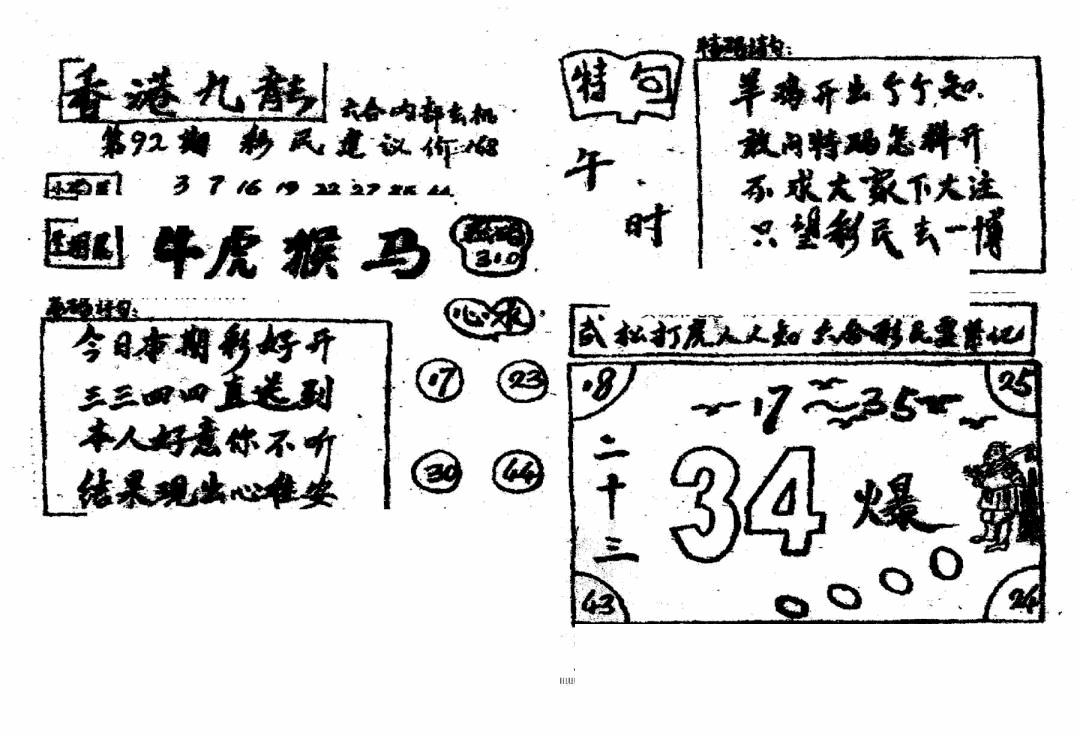 香港九龍
六合内部玄机
第92期 彩民建议价:168
3 7 16 19 22 27
牛虎猴马
310
心水
今日本期彩好开
三三四四直送到
本人好意你不听
结果现出心难安
17 23
30 44
特句
午时
特码诗句:
羊鸡开出个个知.
敢问特码怎料开
不求大家下大注
只望彩民去一博
武松打虎人人知 六合彩民要紧记
18 25
17 35
二十三
34爆
43 24